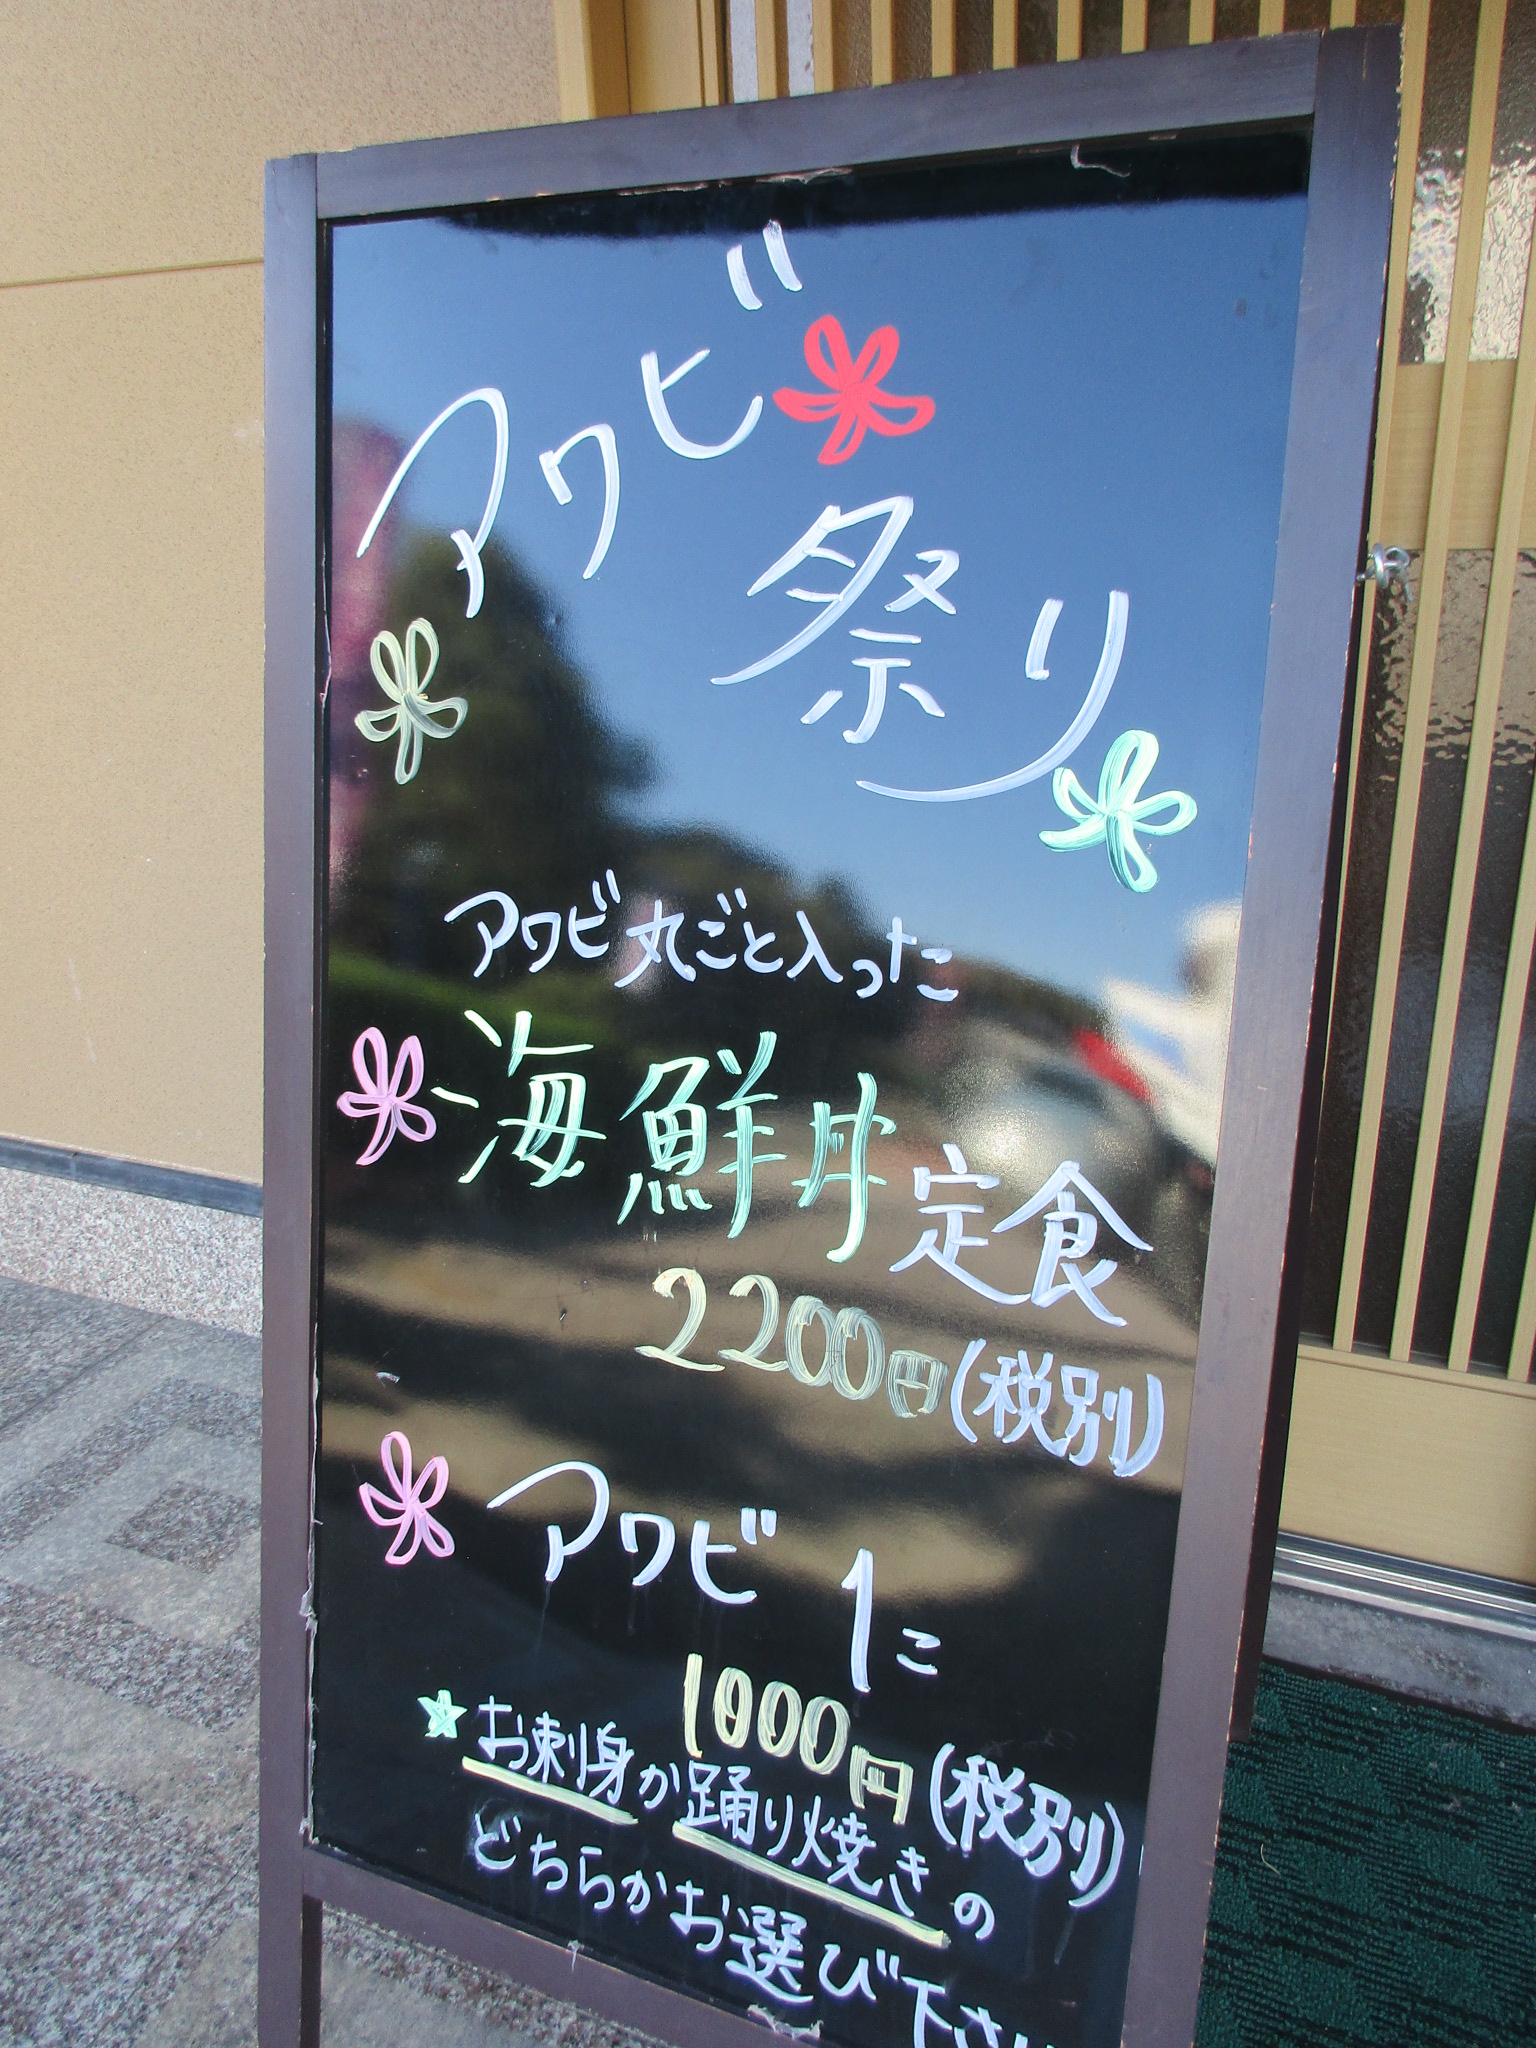 アワビ
祭り
アワビ丸ごと入った
海鮮丼定食
2200円(税別)
アワビ1こ
1000円(税別)
★お刺身か踊り焼きの
どちらかお選び下さい